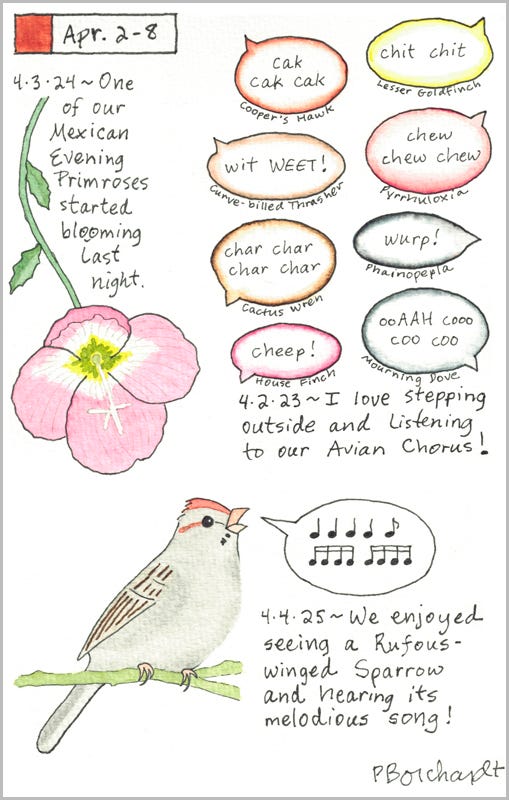 Apr. 2-8
4.3.24~One
of our
Mexican
Evening
Primroses
started
blooming
last
night.
cak
cak cak
Cooper's Hawk
chit chit
Lesser Goldfinch
wit WEET!
Curve-billed Thrasher
chew
chew chew
Pyrrhuloxia
char char
char char
Cactus Wren
wurp!
Phainopepla
cheep!
House Finch
ooAAH cooo
coo coo
Mourning Dove
4.2.23~I love stepping
outside and listening
to our Avian Chorus!
4.4.25~We enjoyed
seeing a Rufous-
winged Sparrow
and hearing its
melodious song!
PBorchardt